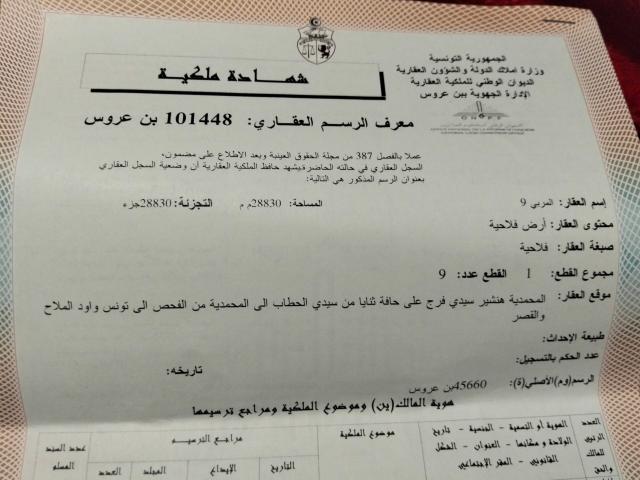 الجمهورية التونسية
وزارة املاك الدولة والشؤون العقارية
الديوان الوطني للملكية العقارية
الإدارة الجهوية ببن عروس
شهادة ملكية
معرف الرسم العقاري: 101448 بن عروس
عملا بالفصل 387 من مجلة الحقوق العينية وبعد الاطلاع على مضمون،
السجل العقاري في حالته الحاضرة،يشهد حافظ الملكية العقارية أن وضعية السجل العقاري
بعنوان الرسم المذكور هي التالية:
إسم العقار: المربي 9 المساحة: 28830م م التجزئة: 28830جزء
محتوى العقار: أرض فلاحية
صبغة العقار: فلاحية
مجموع القطع: 1 القطع عدد: 9
موقع العقار: المحمدية هنشير سيدي فرج على حافة ثنايا من سيدي الحطاب الى المحمدية من الفحص الى تونس واود الملاح
والقصر
طبيعة الإحداث:
عدد الحكم بالتسجيل: تاريخه:
الرسم(وم)الأصلي(ة): 45660بن عروس
هوية المالك(ين) وموضوع الملكية ومراجع ترسيمها
العدد
الرتبي
للمالك
والحق
الهوية أو التسمية - الجنسية - تاريخ
الولادة و مكانها - العنوان - الشكل
القانوني - المقر الإجتماعي
موضوع الملكية
مراجع الترسيم
التاريخ الإيداع المجلد العدد
عدد السند
المسلم